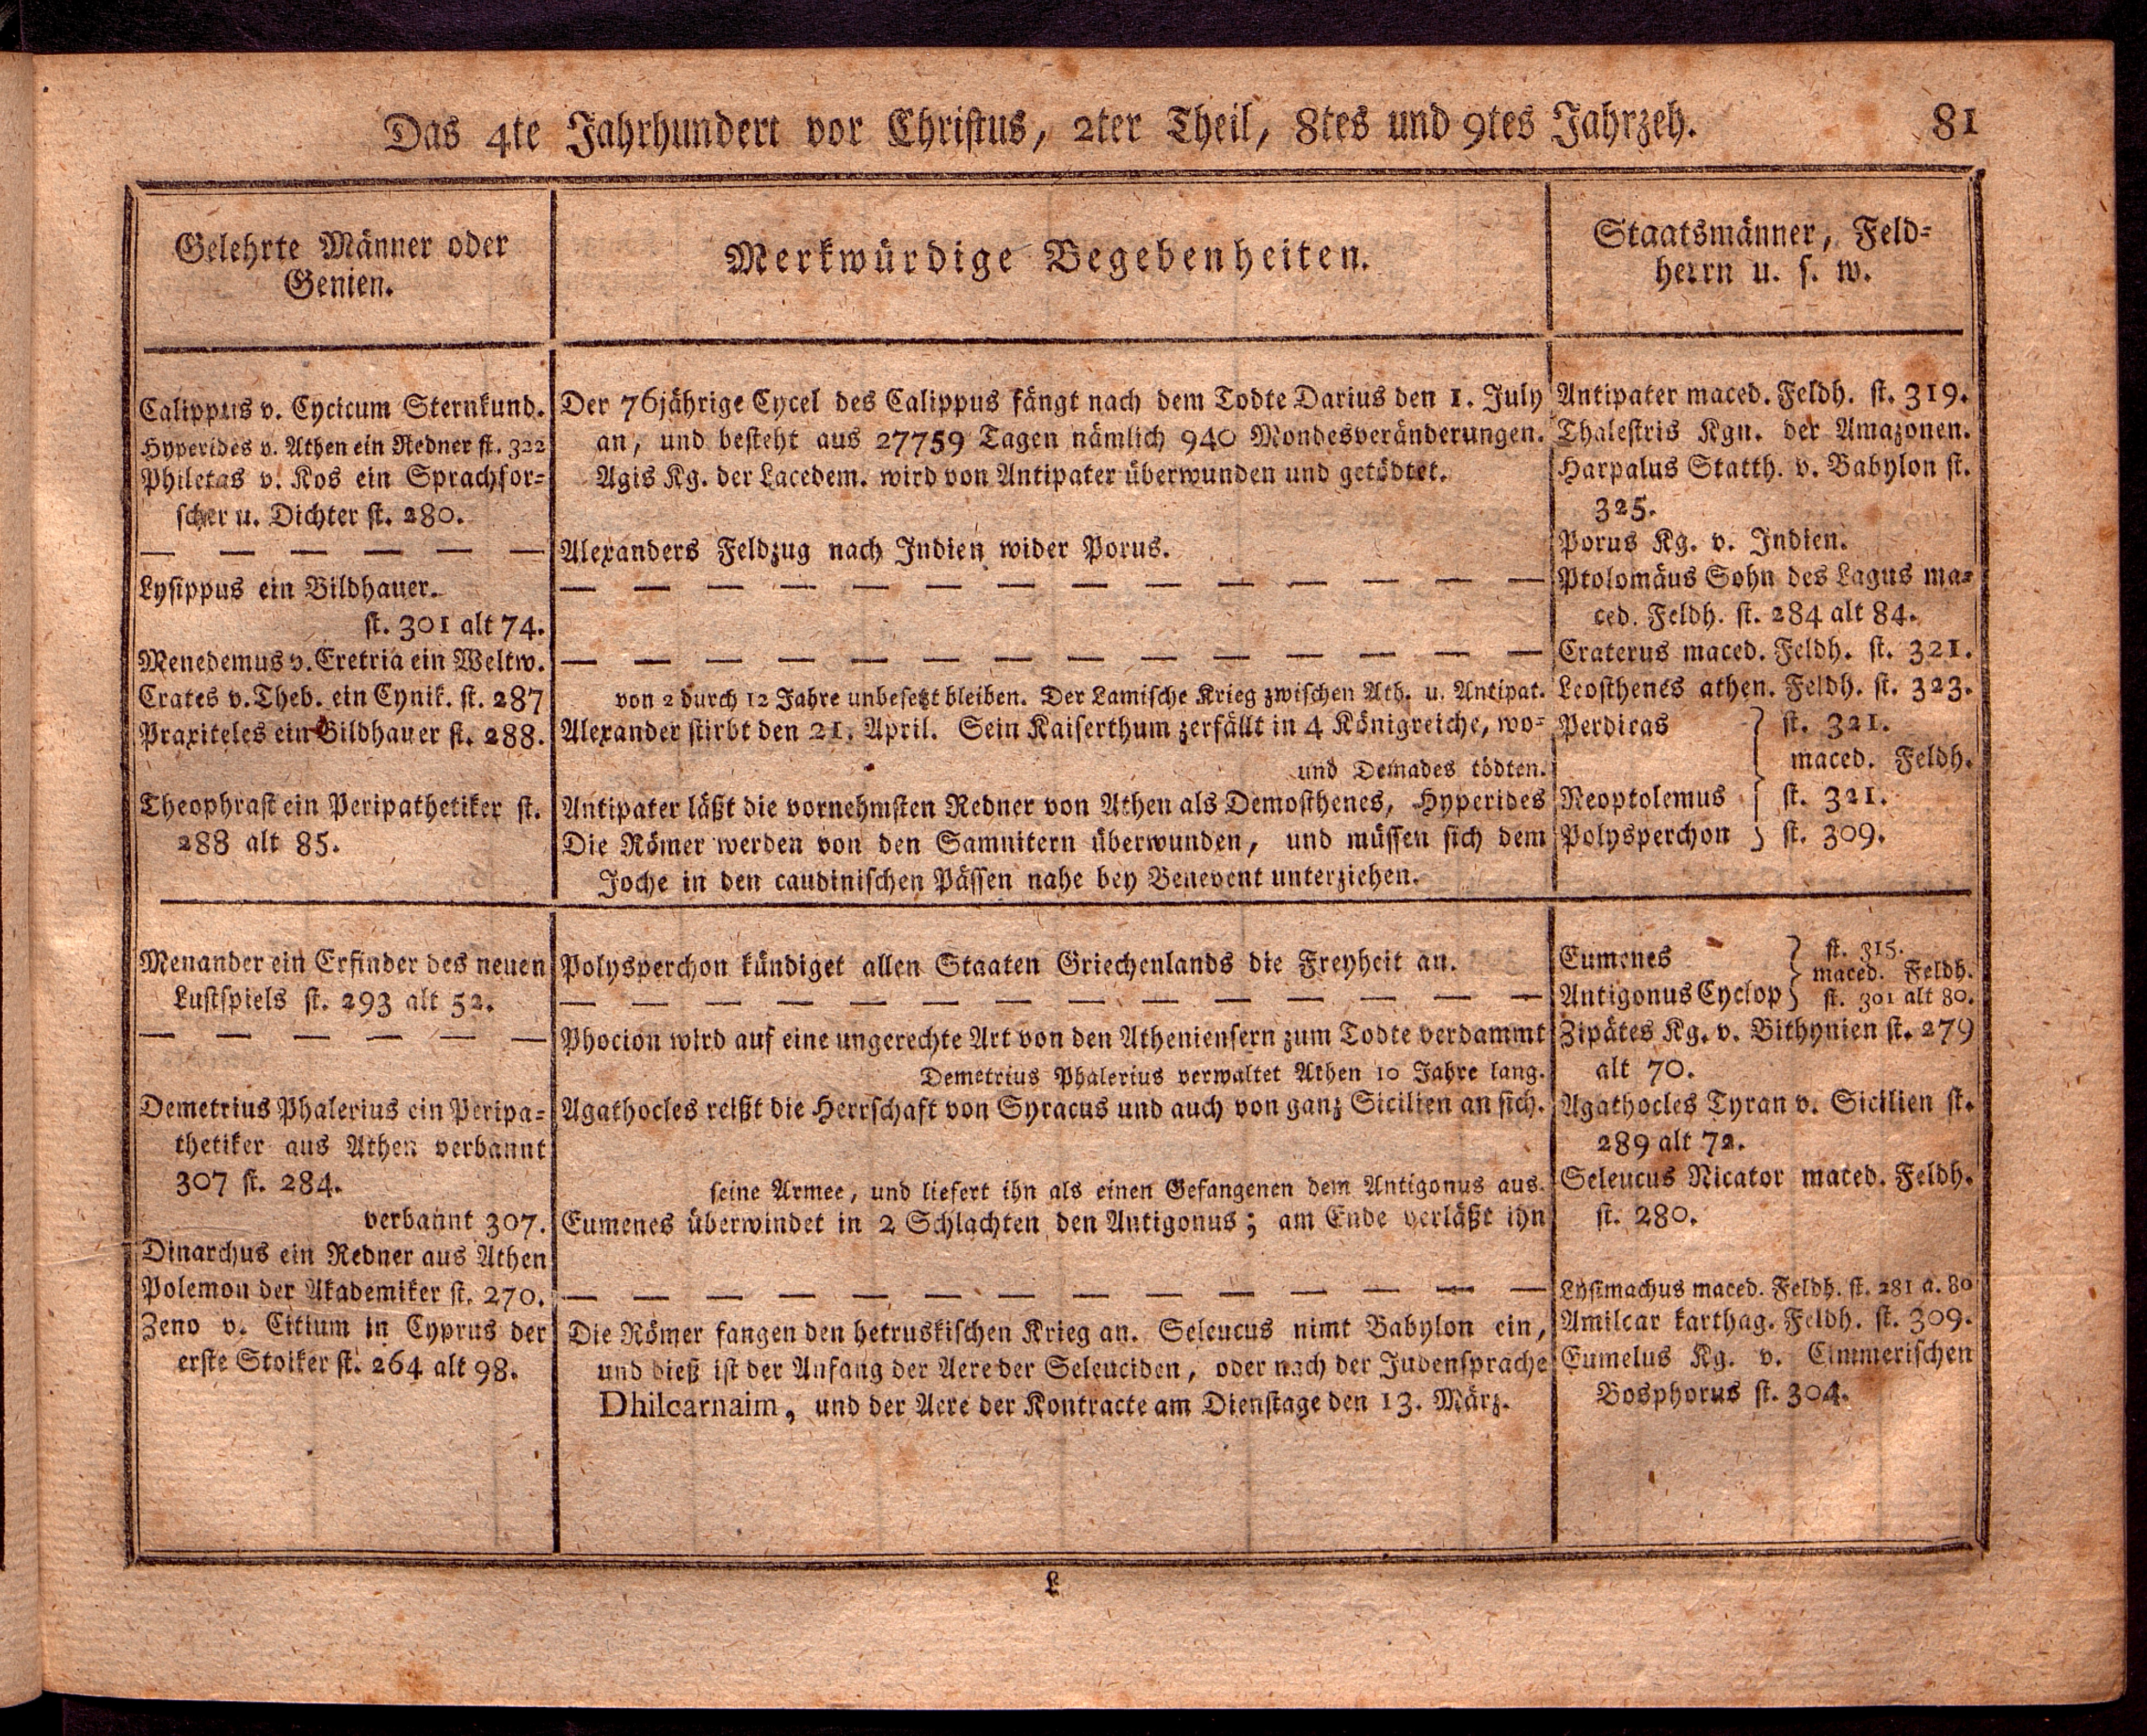 Das 4te Jahrhundert vor Christus, 2ter Theil, 8tes und 9tes Jahrzeh.
81
Gelehrte Männer oder
Genien.
Merkwürdige Begebenheiten.
Staatsmänner, Feld-
herrn u. s. w.
Calippus v. Cycicum Sternkund.
Hyperides v. Athen ein Redner st. 322
Philetas v. Kos ein Sprachfor-
scher u. Dichter st. 280.
— — — — — —
Lysippus ein Bildhauer.
st. 301 alt 74.
Menedemus v. Eretria ein Weltw.
Crates v. Theb. ein Cynik. st. 287
Praxiteles ein Bildhauer st. 288.
Theophrast ein Peripathetiker st.
288 alt 85.
Der 76jährige Cycel des Calippus fängt nach dem Todte Darius den 1. July
an, und besteht aus 27759 Tagen nämlich 940 Mondesveränderungen.
Agis Kg. der Lacedem. wird von Antipater überwunden und getödtet.
Alexanders Feldzug nach Indien wider Porus.
— — — — — — — — — — — — — —
— — — — — — — — — — — — — —
von 2 durch 12 Jahre unbesetzt bleiben. Der Lamische Krieg zwischen Ath. u. Antipat.
Alexander stirbt den 21. April. Sein Kaiserthum zerfällt in 4 Königreiche, wo-
und Demades tödten.
Antipater läßt die vornehmsten Redner von Athen als Demosthenes, Hyperides
Die Römer werden von den Samnitern überwunden, und müssen sich dem
Joche in den caudinischen Pässen nahe bey Benevent unterziehen.
Antipater maced. Feldh. st. 319.
Thalestris Kgn. der Amazonen.
Harpalus Statth. v. Babylon st.
325.
Porus Kg. v. Indien.
Ptolomäus Sohn des Lagus ma-
ced. Feldh. st. 284 alt 84.
Craterus maced. Feldh. st. 321.
Leosthenes athen. Feldh. st. 323.
Perdicas } st. 321.
maced. Feldh.
Neoptolemus } st. 321.
Polysperchon } st. 309.
Menander ein Erfinder des neuen
Lustspiels st. 293 alt 52.
— — — — — —
Demetrius Phalerius ein Peripa-
thetiker aus Athen verbannt
307 st. 284.
verbannt 307.
Dinarchus ein Redner aus Athen
Polemon der Akademiker st. 270.
Zeno v. Citium in Cyprus der
erste Stoiker st. 264 alt 98.
Polysperchon kündiget allen Staaten Griechenlands die Freyheit an.
— — — — — — — — — — — — — —
Phocion wird auf eine ungerechte Art von den Atheniensern zum Todte verdammt
Demetrius Phalerius verwaltet Athen 10 Jahre lang.
Agathocles reißt die Herrschaft von Syracus und auch von ganz Sicilien an sich.
seine Armee, und liefert ihn als einen Gefangenen dem Antigonus aus.
Eumenes überwindet in 2 Schlachten den Antigonus; am Ende verläßt ihn
— — — — — — — — — — — — — —
Die Römer fangen den hetruskischen Krieg an. Seleucus nimt Babylon ein,
und dieß ist der Anfang der Aere der Seleuciden, oder nach der Judensprache
Dhilcarnaim, und der Aere der Kontracte am Dienstage den 13. März.
Eumenes } st. 315.
maced. Feldh.
Antigonus Cyclop } st. 301 alt 80.
Zipätes Kg. v. Bithynien st. 279
alt 70.
Agathocles Tyran v. Sicilien st.
289 alt 72.
Seleucus Nicator maced. Feldh.
st. 280.
Lysimachus maced. Feldh. st. 281 a. 80
Amilcar karthag. Feldh. st. 309.
Eumelus Kg. v. Cimmerischen
Bosphorus st. 304.
L